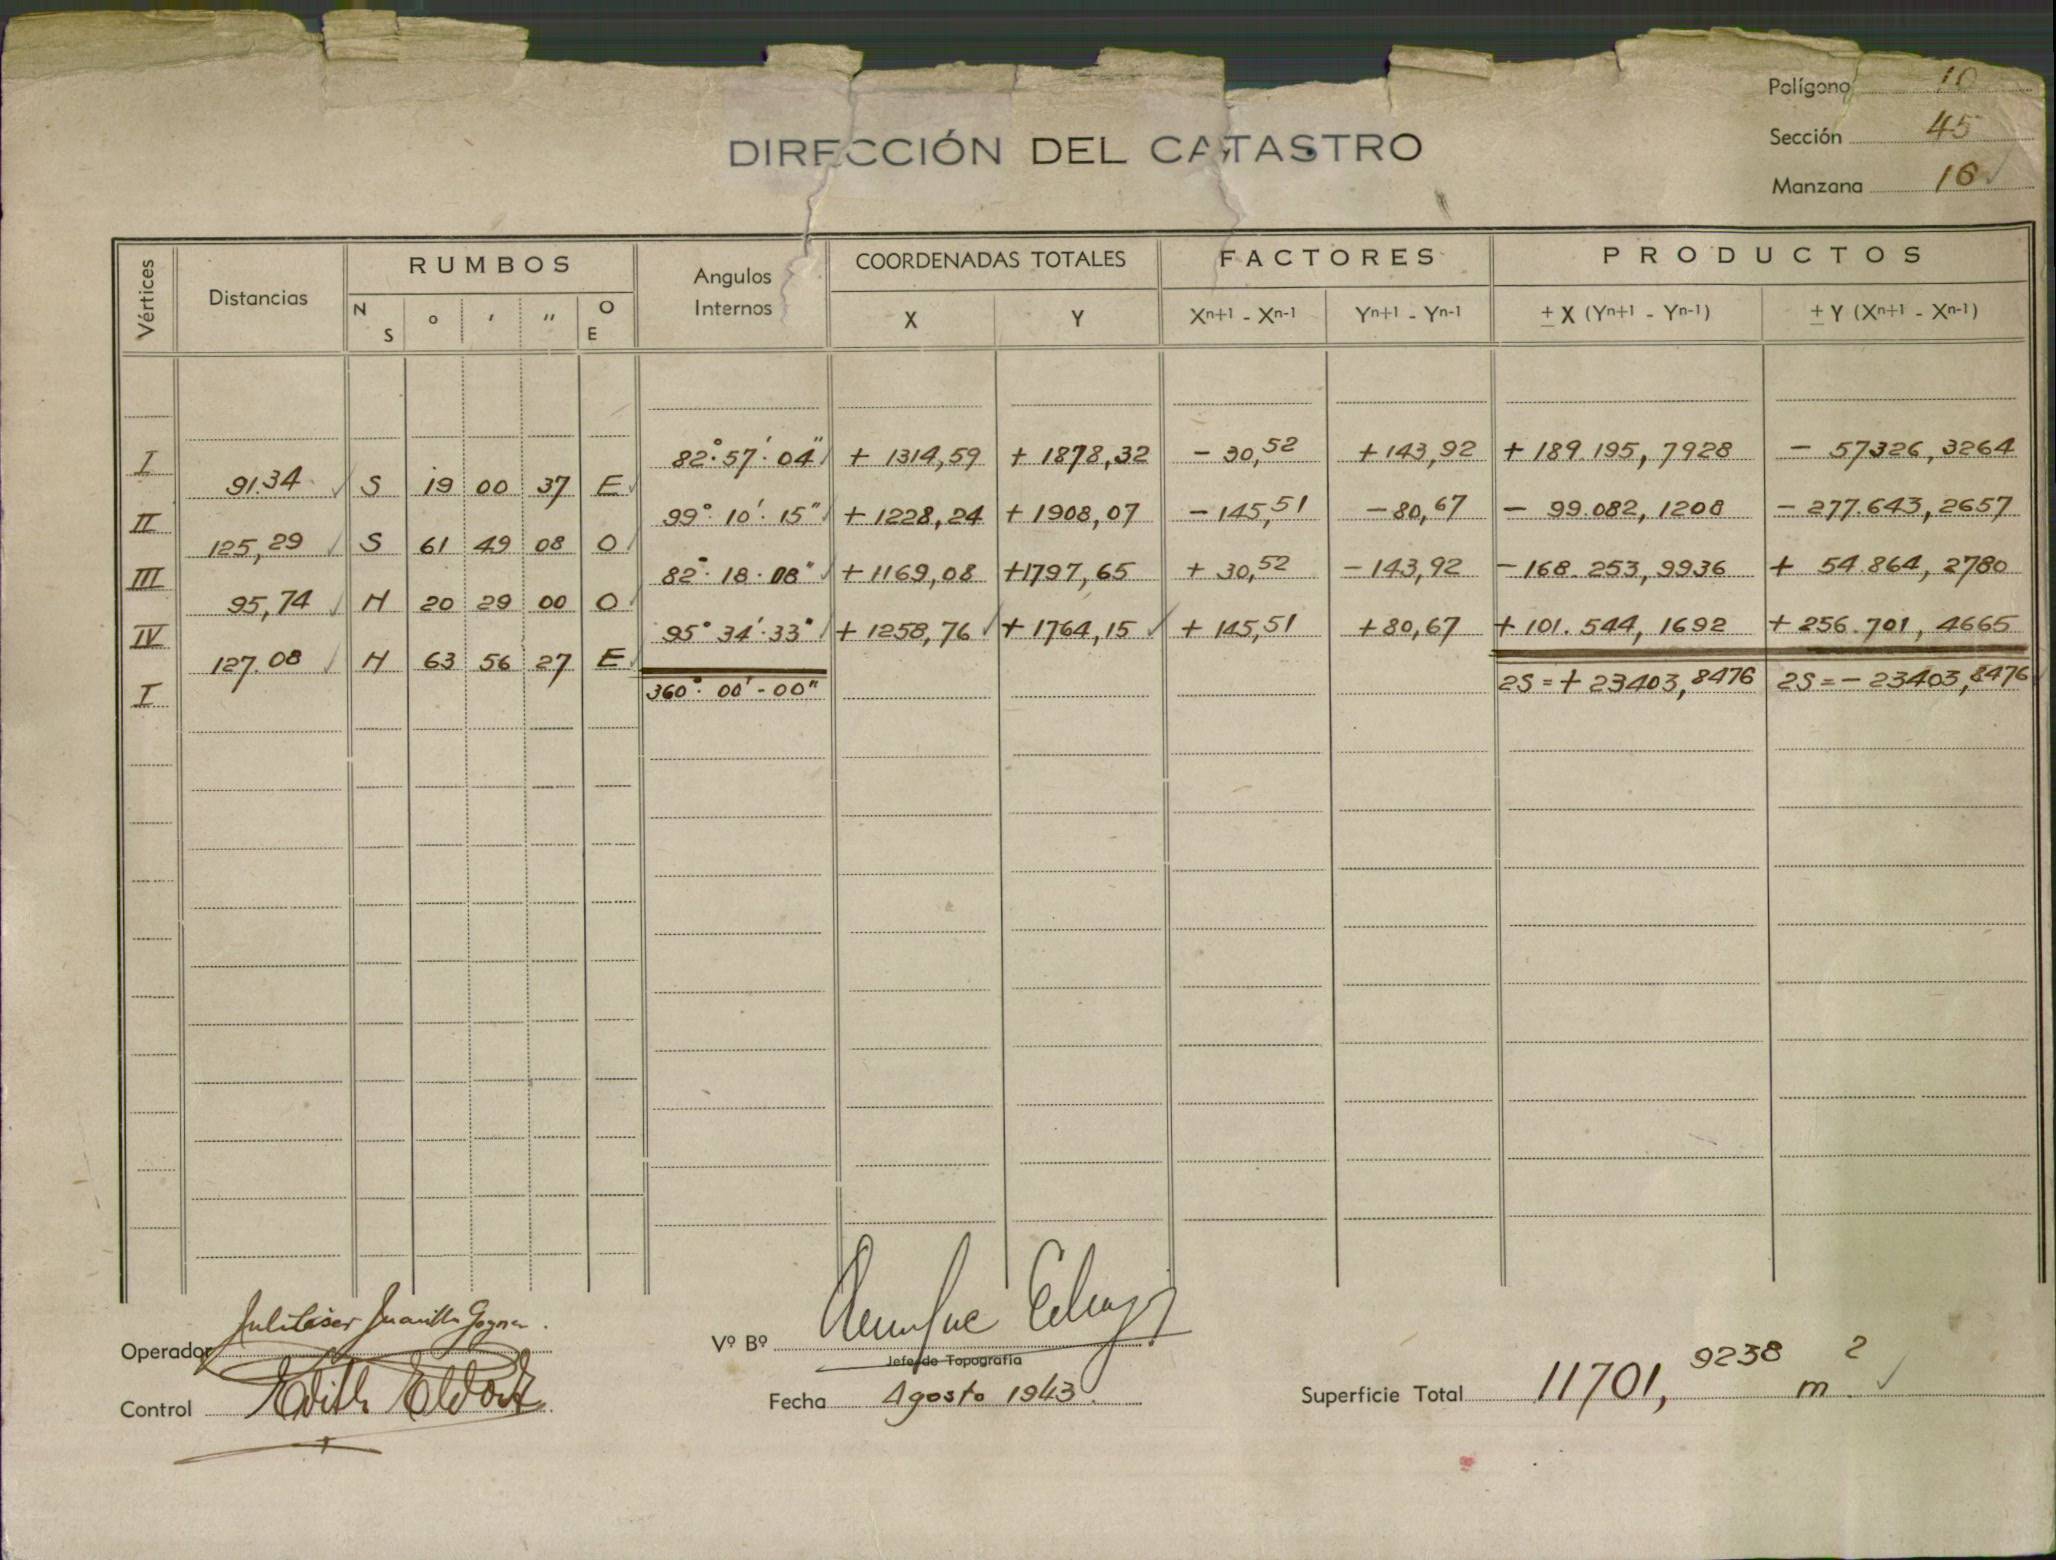 Polígono 10
DIRECCIÓN DEL CATASTRO
Sección 45
Manzana 16
Vértices Distancias RUMBOS Angulos Internos COORDENADAS TOTALES FACTORES PRODUCTOS
N S ° ' '' O E X Y Xn+1 - Xn-1 Yn+1 - Yn-1 ± X (Yn+1 - Yn-1) ± Y (Xn+1 - Xn-1)
I 82°.57'.04" + 1314,59 + 1878,32 - 30,52 + 143,92 + 189.195,7928 - 57326,3264
91.34 S 19 00 37 E
II 99°.10'.15" + 1228,24 + 1908,07 - 145,51 - 80,67 - 99.082,1208 - 277.643,2657
125,29 S 61 49 08 O
III 82°.18.08" + 1169,08 +1797,65 + 30,52 - 143,92 - 168.253,9936 + 54.864,2780
95,74 N 20 29 00 O
IV 95° 34'.33" + 1258,76 + 1764,15 + 145,51 + 80,67 + 101.544,1692 + 256.701,4665
127.08 N 63 56 27 E
I 360°.00'-00" 2S = + 23403,8476 2S = - 23403,8476
Operador
Vº Bº
Jefe de Topografía
Control Edith
Fecha Agosto 1943.
Superficie Total 11701,9238 m.2